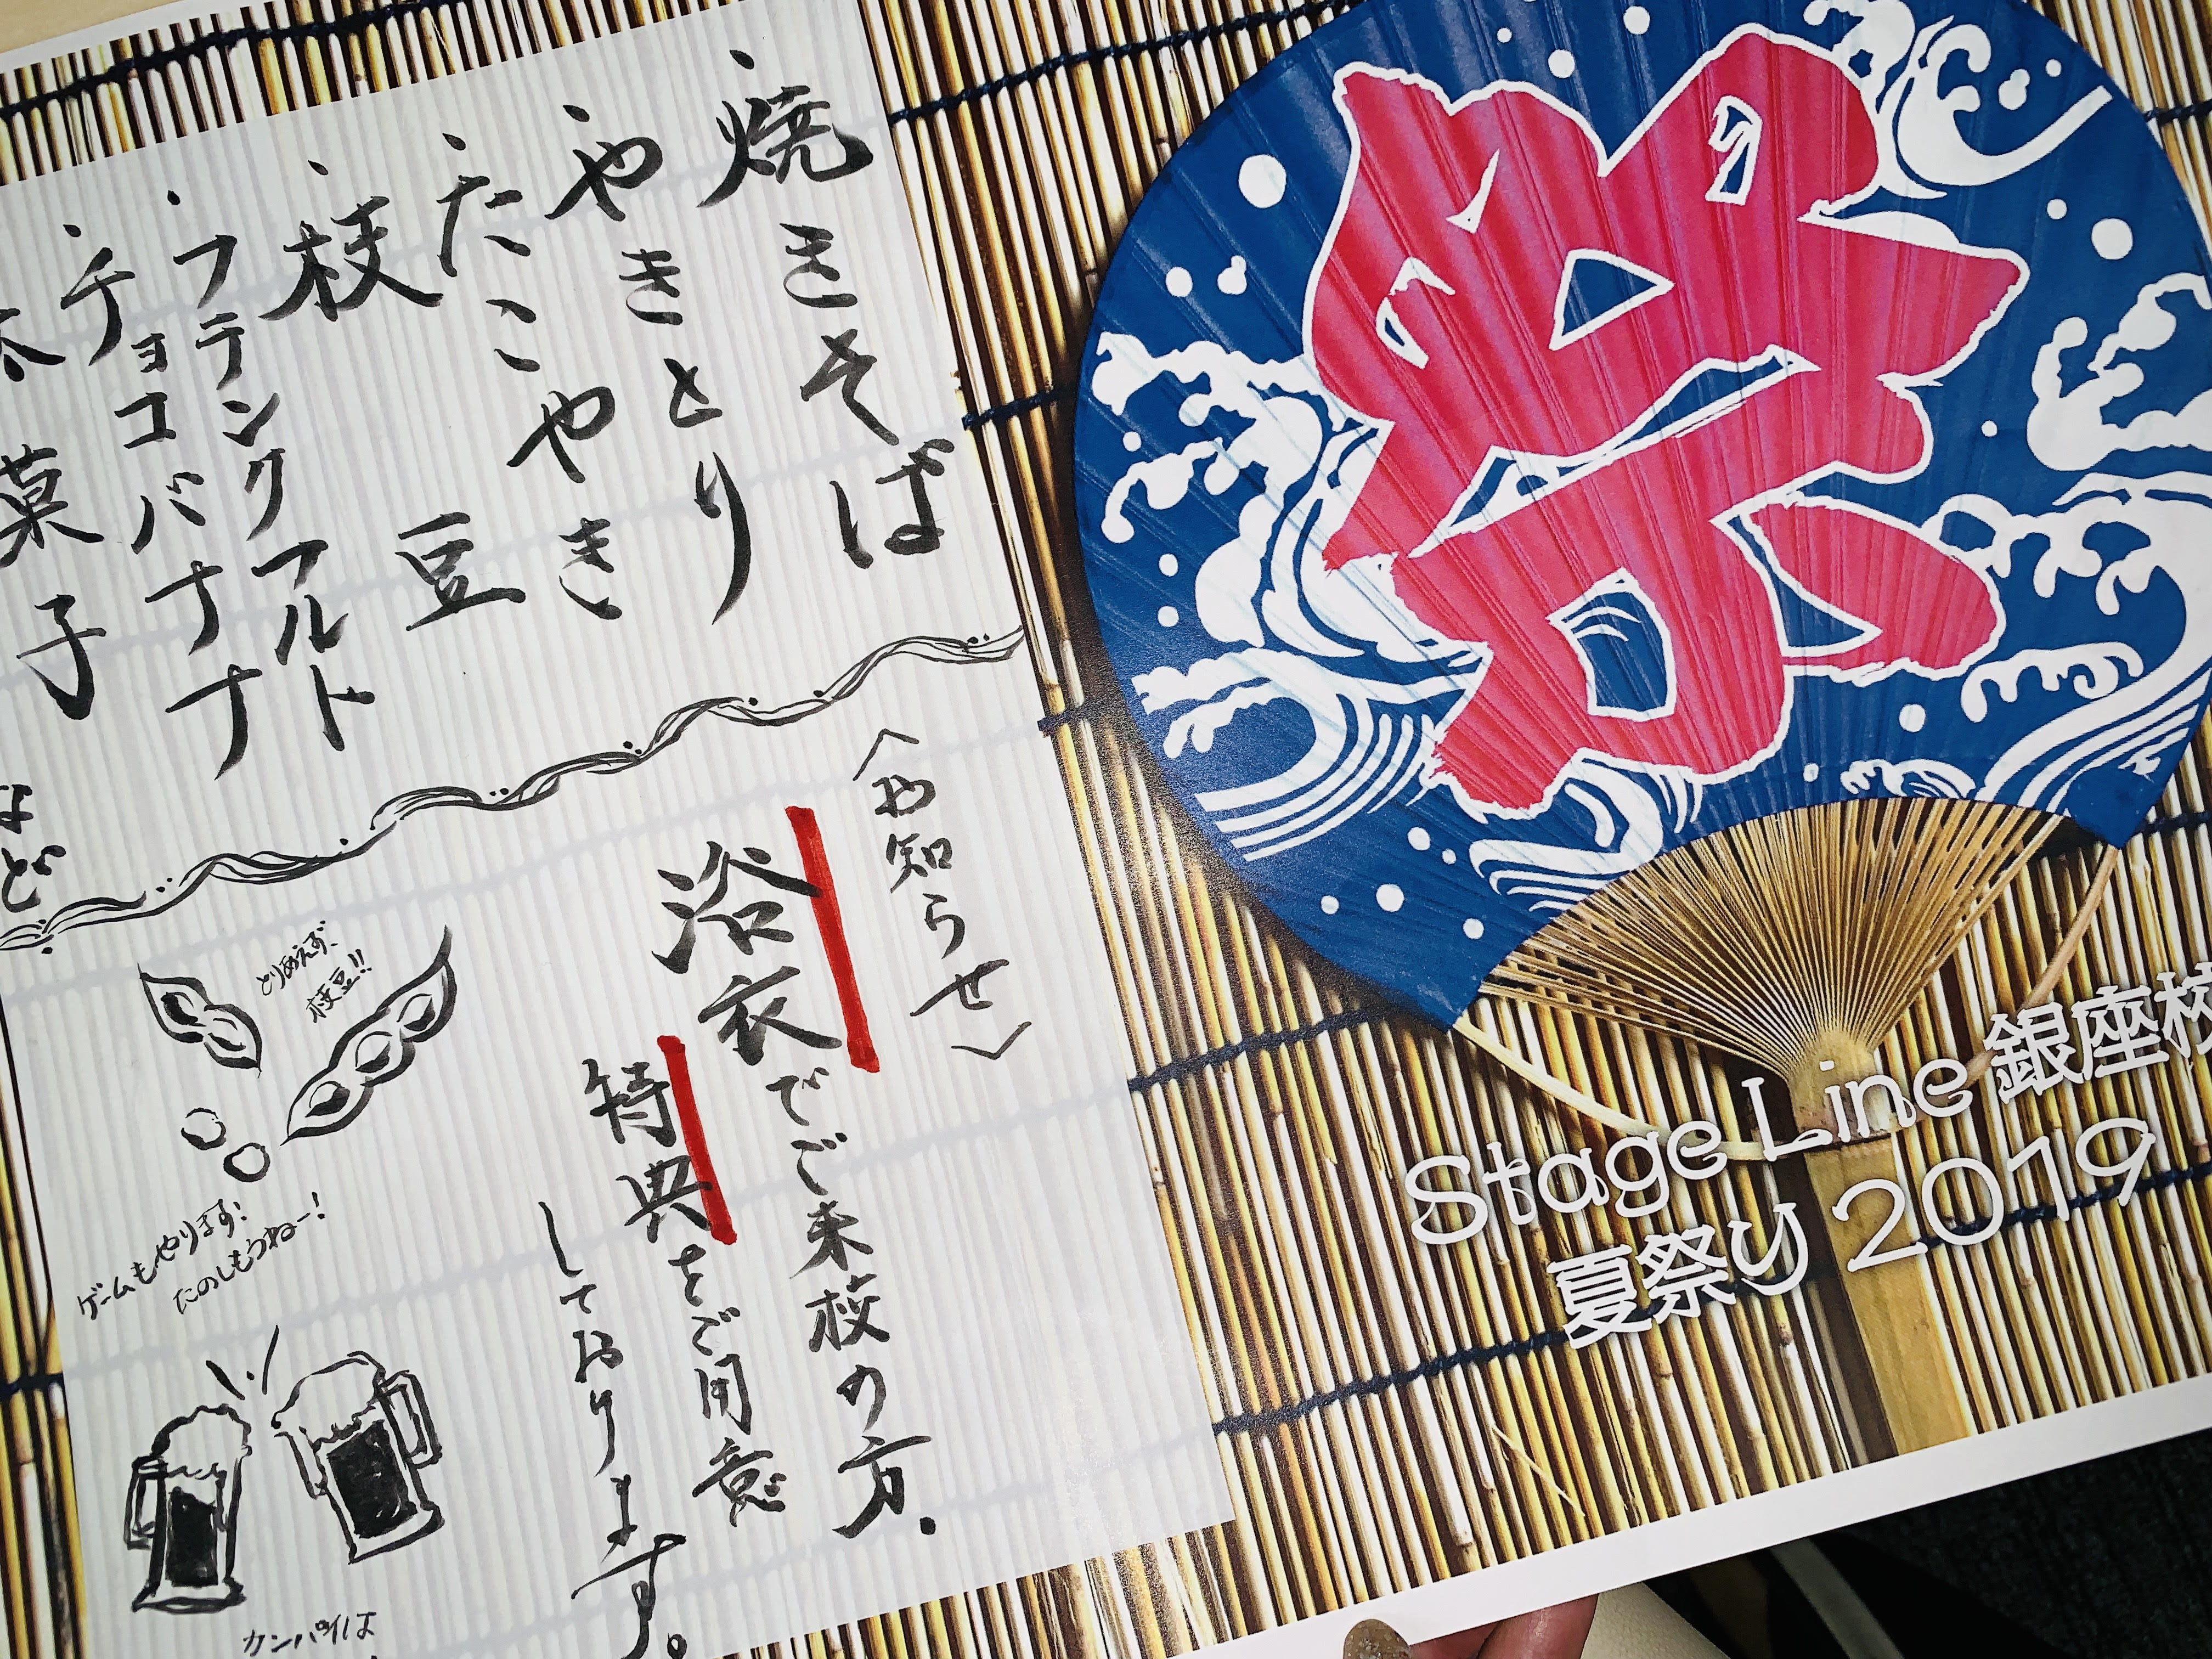 ・焼きそば
・やきとり
・たこやき
・枝豆
・フランクフルト
・チョコバナナ
菓子
など
〈お知らせ〉
浴衣でご来校の方、
特典をご用意
しております。
とりあえず、
枝豆!!
ゲームもやります!
たのしもうねー!
カンパイは
祭
Stage Line 銀座校
夏祭り 2019